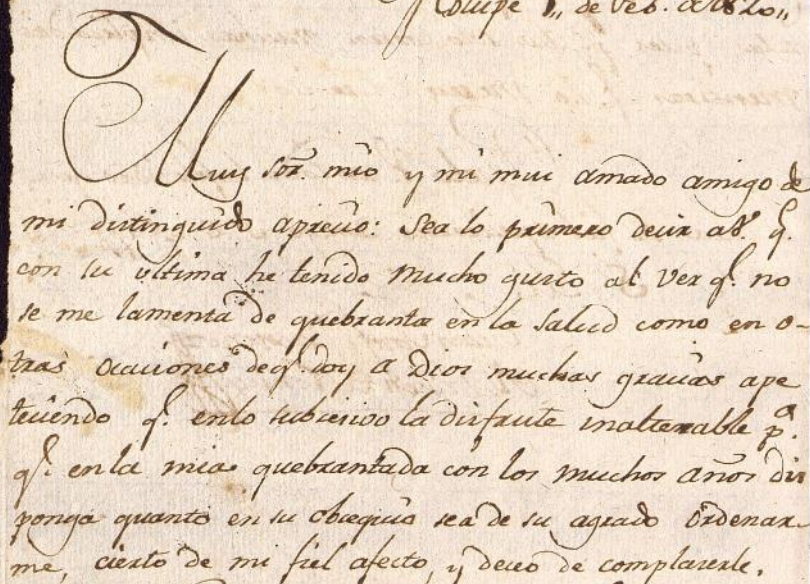 de Feb. de 1820,,
Muy Sor. mio y mi mui amado amigo de
mi distinguido aprecio: Sea lo primero decir a V. q.
con su ultima he tenido mucho gusto al ver q. no
se me lamenta de quebranto en la salud como en o-
tras ocaciones de q. doy a Dios muchas gracias ape
teciendo q. en lo subcesivo la disfrute inalterable pa.
q. en la mia quebrantada con los muchos años dis
ponga quanto en su obsequio sea de su agrado ordenar-
me, cierto de mi fiel afecto, y deceo de complacerle.